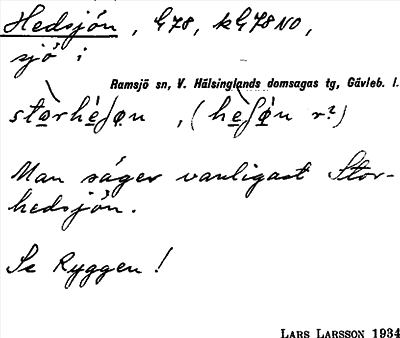 Hedsjön, G78, kG78NO,
sjö i
Ramsjö sn, V. Hälsinglands domsagas tg, Gävleb. l.
Man säger vanligast Stor-
hedsjön.
Se Ryggen!
LARS LARSSON 1934